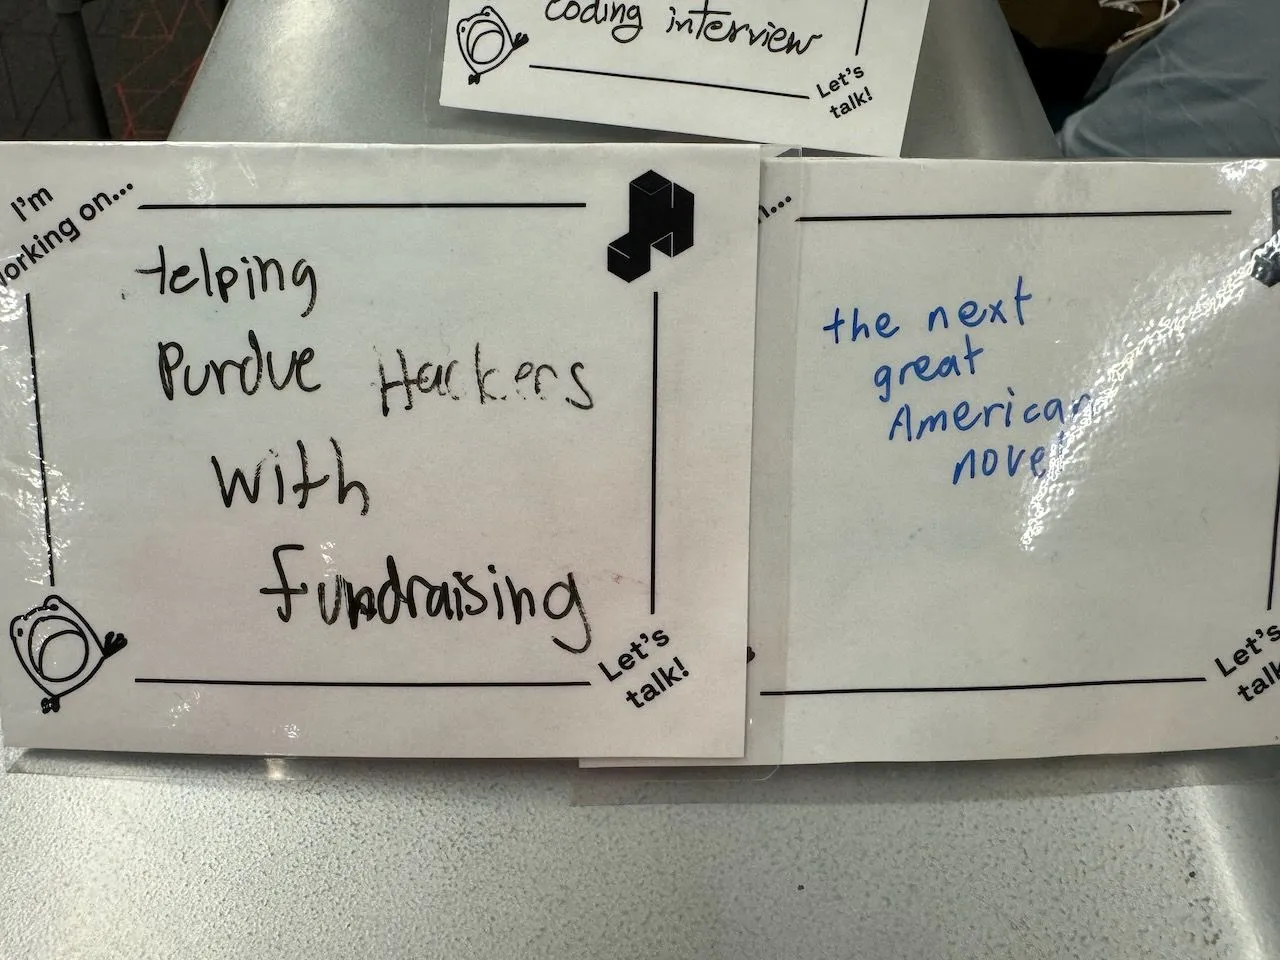 coding interview
Let's
talk!
I'm
working on...
Helping
Purdue Hackers
with
fundraising
Let's
talk!
n...
the next
great
American
novel
Let's
talk